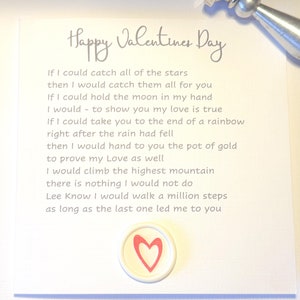 Happy Valentines Day
If I could catch all of the stars
then I would catch them all for you
If I could hold the moon in my hand
I would - to show you my love is true
If I could take you to the end of a rainbow
right after the rain had fell
then I would hand to you the pot of gold
to prove my Love as well
I would climb the highest mountain
there is nothing I would not do
Lee Know I would walk a million steps
as long as the last one led me to you